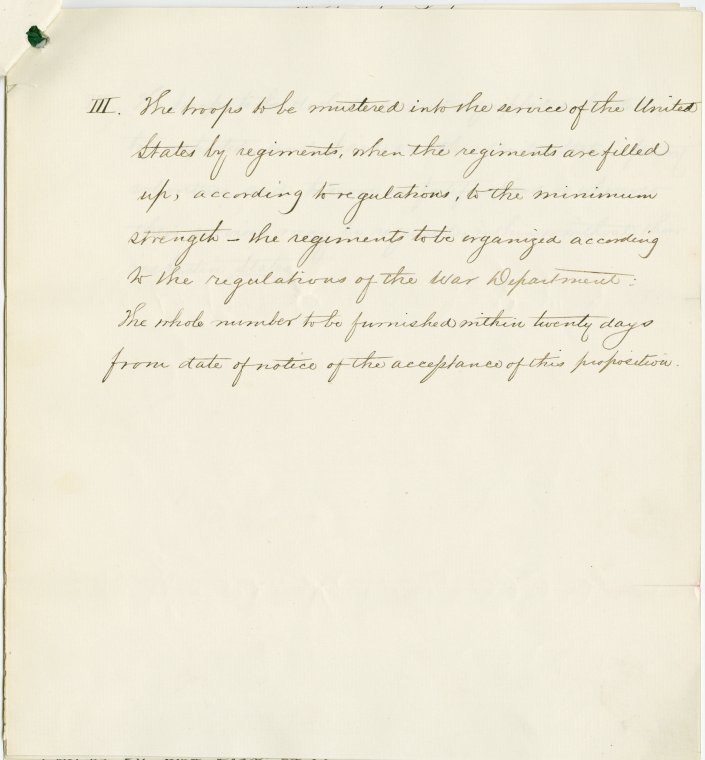 III. The troops to be mustered into the service of the United
States by regiments, when the regiments are filled
up, according to regulations, to the minimum
strength – the regiments to be organized according
to the regulations of the War Department:
The whole number to be furnished within twenty days
from date of notice of the acceptance of this proposition.